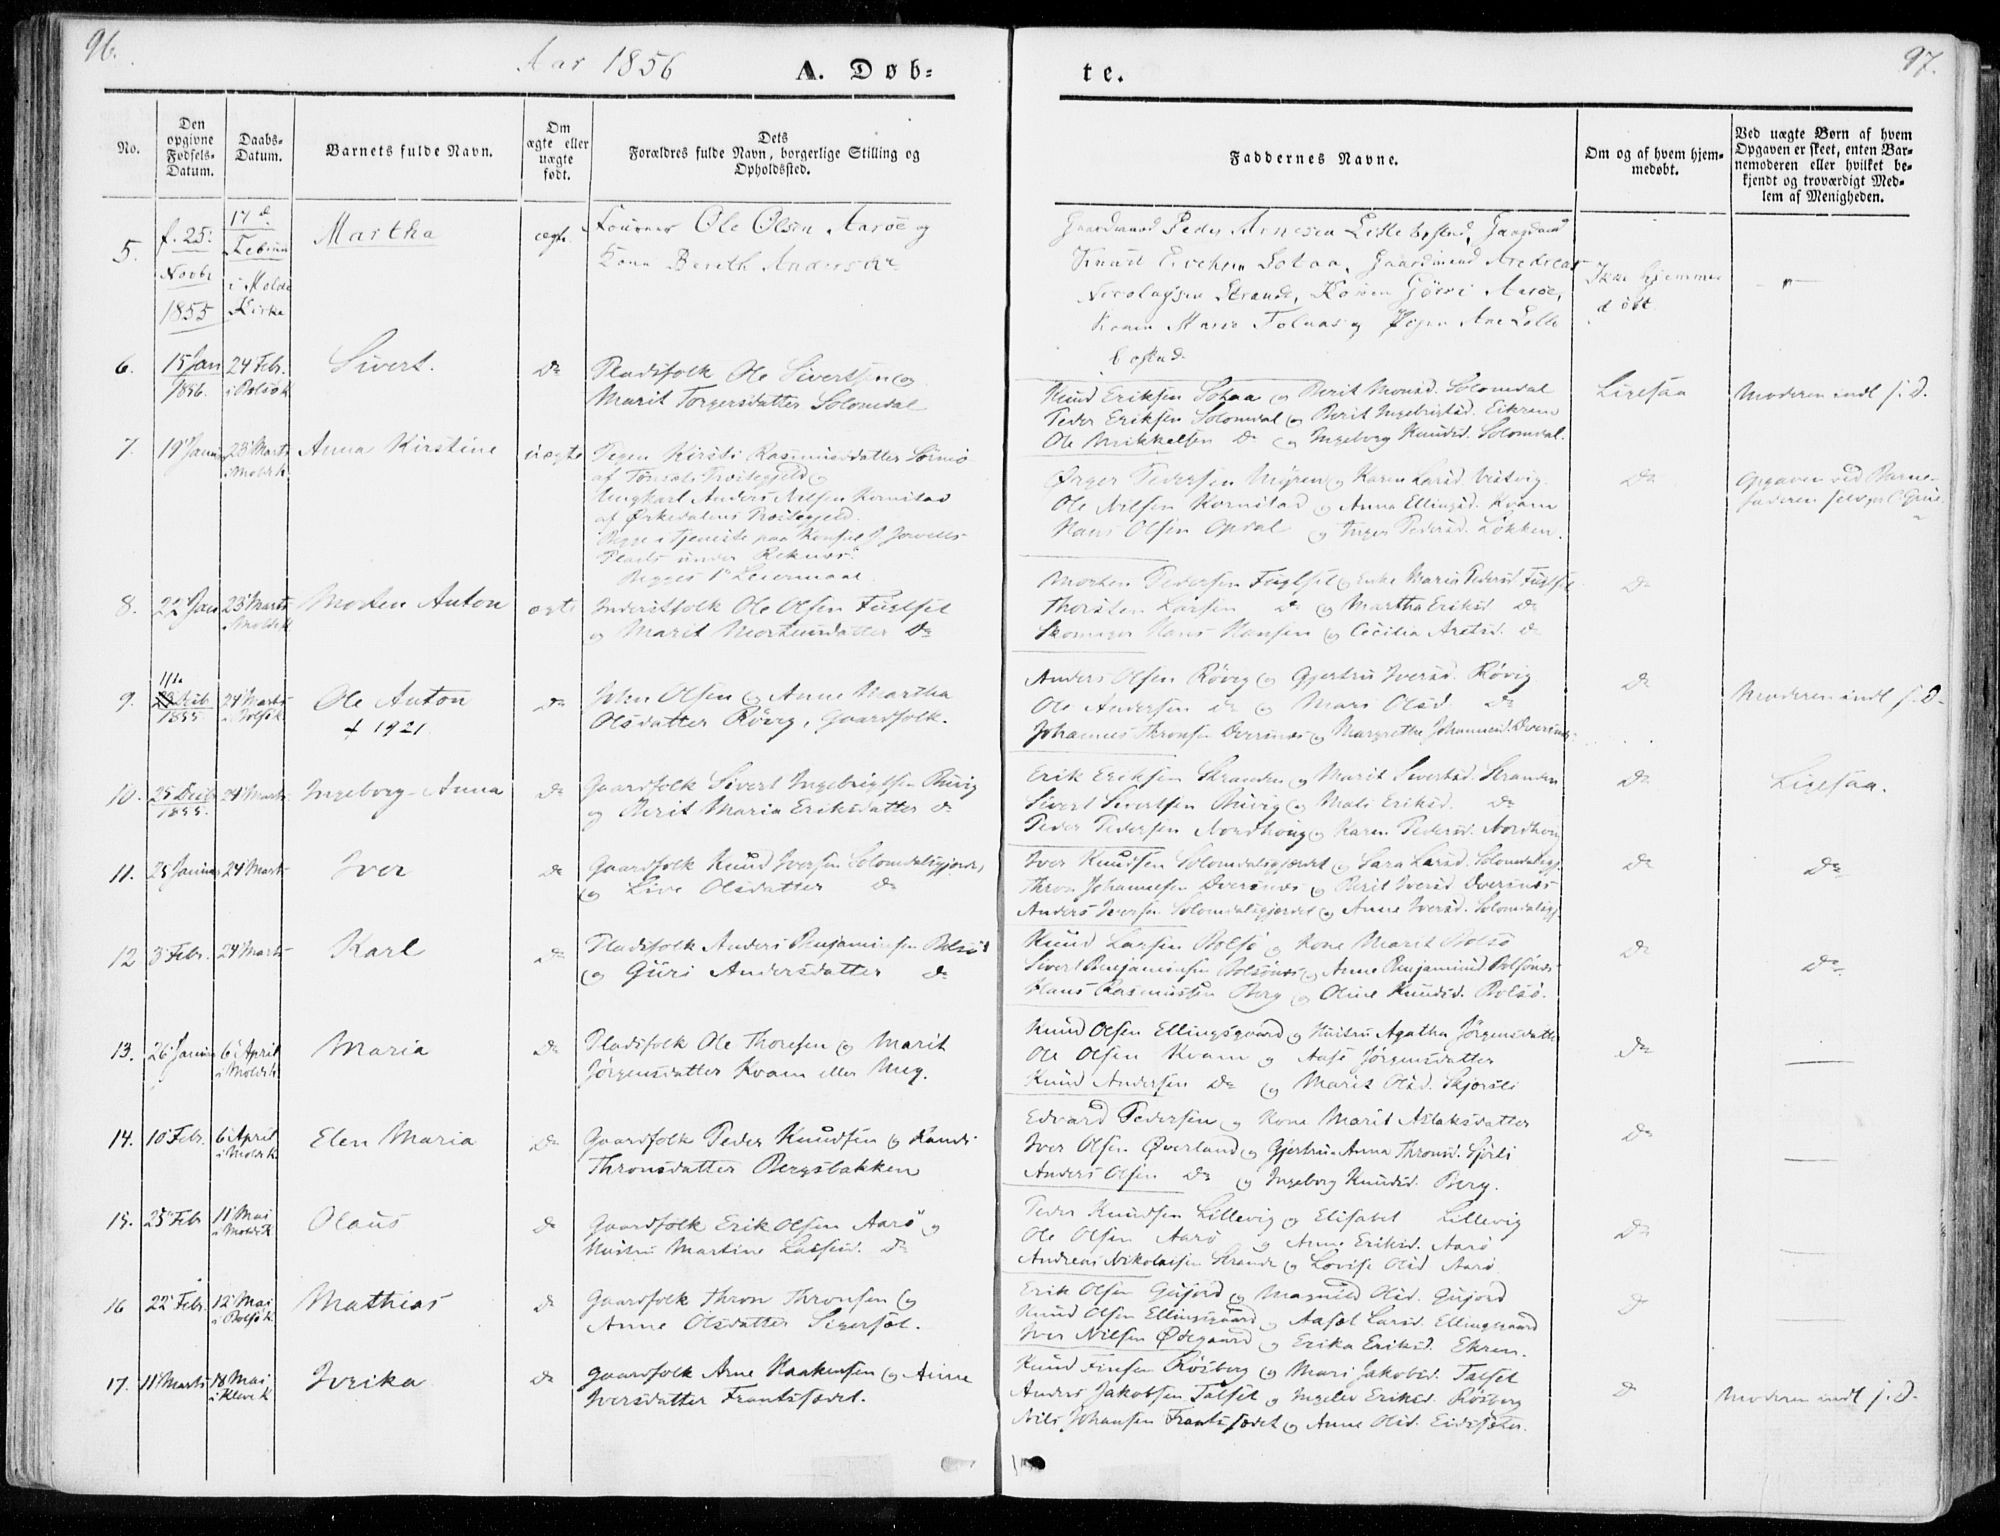 96.
Aar 1856
A. Døb-
te.
97.
No.
Den opgivne Fødsels-Datum.
Daabs-Datum.
Barnets fulde Navn.
Om ægte eller uægte født.
Dets Forældres fulde Navn, borgerlige Stilling og Opholdssted.
Faddernes Navne.
Om og af hvem hjem-medøbt.
Ved uægte Børn af hvem Opgaven er skeet, enten Bar-nemoderen eller hvilket be-kjendt og troværdigt Med-lem af Menigheden.
5.
f. 25.
Novbr
1855
17d
Februar
i Molde
Kirke
Martha
ægte
Ole Olsen Aarøe og
Kone Bereth
Gaardmand Peder Arnesen Lillebostad, Gaardmand
Knud Erichsen Sotaa, Gaardmand Andreas
Nicolaysen Strande, Konen Gøri Aarøe,
Konen Marie og Pigen Ane Lille
bostad
Ikke hjemme
døbt
"
6.
15 Jan
1856.
24 Febr.
i Bolsø K
Sivert.
Do
Pladsfolk Ole Sivertsen og
Marit Torgersdatter Solomdal
Knud Eriksen Sotaa og Berit Monsd. Solomdal
Peder Eriksen Solomdal og Berit Ingebrigtsd. Eikrem
Ole Mikkelsen Do og Ingeborg Knudsd. Solomdal.
Ligesaa
Moderen indl f. D.
7.
19 Januar
23 Marts
i Molde K.
Anna Kirstine
uægte
Pigen Kirsti Rasmusdatter
af Præstegjeld og
Ungkarl Anders Nilsen Kornstad
af Ørkedalens Præstegjeld.
Begge i Tjeneste paa Konsul
Plads under Reknæs.
Begges 1ste Leiermaal.
Pedersen Myren og Karen Larsd.
Ole Nilsen Kornstad og Anna Ellingsd. Kvam
Hans Olsen Opdal og Inger Pedersd. Løkken.
Do
Opgaven ved Barne-
faderen selv
8.
22 Jan
23 Marts
i Molde K
Morten Anton
ægte
Inderstfolk Ole Olsen Fuglset
og Marit Mortensdatter Do
Morten Pedersen Fuglset og Enke Maria Pedersd. Fuglset
Thorsten Larsen Do og Martha Eriksd. Do
Skomager Hans Hansen og Cecilia Do
Do
9.
11te
Decb
1855
24 Marts
i Bolsø K.
Ole Anton
† 1921
Do
John Olsen og Anne Martha
Olsdatter Røvig, Gaardfolk.
Anders Olsen Røvig og Gjertru Iversd. Røvig
Ole Andersen Do og Mari Olsd. Do
Johannes Thronsen Dversnes og Margrethe Johannesd. Dversnes
Do
Moderen indl f. D.
10.
25 Decb
1855.
24 Marts
Ingeborg-Anna
Do
Gaardfolk Sivert Ingebrigtsen
og Berit Maria Eriksdatter Do
Erik Eriksen Stranden og Marit Sivertsd. Stranden
Sivert Sivertsen og Mali Eriksd. Do
Peder Pedersen og Karen Pedersd.
Do
Ligesaa.
11.
25 Januar
24 Marts
Iver
Do
Gaardfolk Knud Iversen Solomdalsgjerdet
og Live Olsdatter Do
Iver Knudsen Solomdalsgjerdet og Sara Larsd. Solomdalsgj.
Thron Johannesen Dversnes og Berit Iversd. Dversnes
Anders Iversen Solomdalsgjerdet og Anne Iversd. Solomdalsgj.
Do
Do
12
3 Febr.
24 Marts
Karl
Do
Pladsfolk Anders Benjaminsen
og Guri Andersdatter Do
Knud Larsen Bolsø og Kone Marit Bolsø
Sivert Benjaminsen Bolsønes og Anne Benjaminsd. Bolsønes
Hans Rasmussen Berg og Oline Knudsd. Bolsø.
Do
Do
13.
26 Januar
6 April
i Molde K.
Maria
Do
Pladsfolk Ole Thoresen og Marit
Jørgensdatter Kvam eller
Knud Olsen Ellingsgaard og Hustru Agatha Jørgensdatter
Ole Olsen Kvam og Aase Jørgensdatter
Knud Andersen Do og Marit Olsd.
Do
14.
10 Febr.
6 April
i Molde K.
Elen Maria
Do
Gaardfolk Peder Knudsen og Randi
Thronsdatter Bergsbakken
Edvard Pedersen og Kone Marit Aslaksdatter
Iver Olsen Øverland og Gjertru-Anna Thronsd.
Anders Olsen Do og Ingeborg Knudsd. Berg.
Do
15.
25 Febr
11 Mai
i Molde K
Olaus
Do
Gaardfolk Erik Olsen Aarø og
Hustru Martine Larsd. Do
Peder Knudsen Lillevig og Elisabet Lillevig
Ole Olsen Aarø og Anne Eriksd. Aarø
Andreas Nikolaisen Strande og Lovise Olsd Aarø.
Do
16
22 Febr.
12 Mai
i Bolsø K.
Mathias
Do
Gaardfolk Thron Thronsen og
Anne Olsdatter
Erik Olsen Gujord og Magnild Olsd. Gujord
Knud Olsen Ellingsgaard og Aasel Larsd. Ellingsgaard
Iver Nilsen Ødegaard og Erika Eriksd.
Do
17.
11 Marts
18 Mai
i Kleve K
Iverika
Do
Gaardfolk Arne Haakensen og Anne
Iversdatter Frantsfædet.
Knud Finsen Røsberg og Mari Jakobsd. Talset
Anders Jakobsen Talset og Ingelev Eriksd. Røsberg
Nils Johansen Frantsfædet og Anne Olsd. Eidssæter.
Do
Moderen indl f. D.